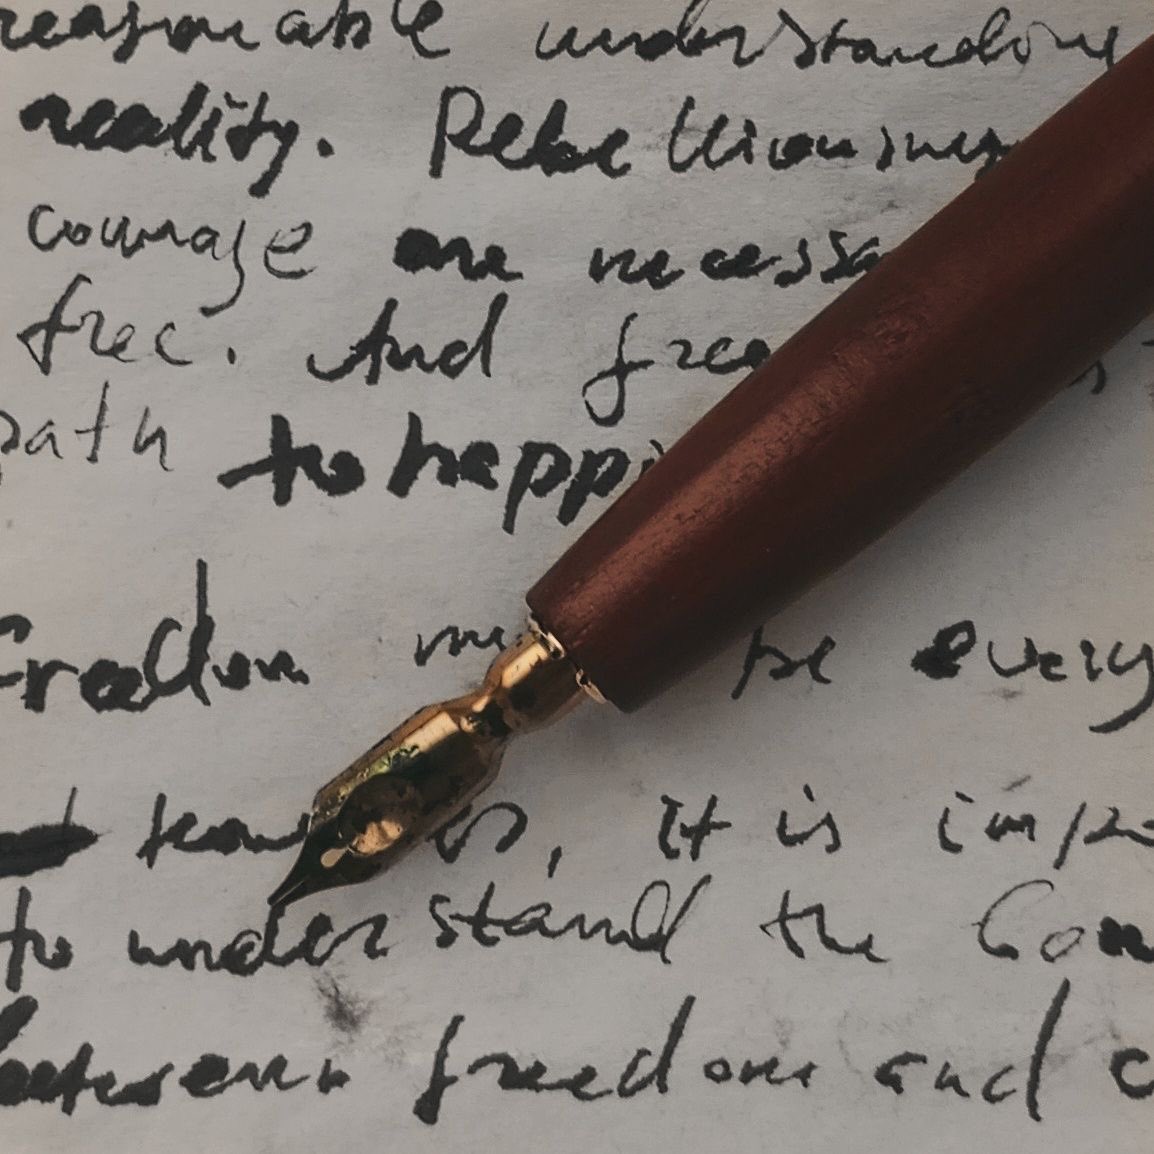 reasonable understanding
reality. Rebelliousness
courage are necessa
free. And free
path to happi
freedom be every
it is imp
to understand the Con
between freedom and c